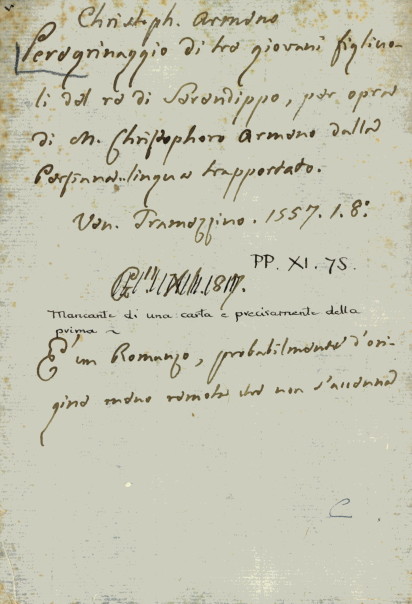 Christoph. Armeno
Peregrinaggio di tre giovani figliuo-
li del re di Serendippo, per opra
di M. Christophoro Armeno dalla
Persiana lingua trapportato.
Ven. Tramezzino. 1557. 1. 8.º
PP. XI. 75.
Mancante di una carta e precisamente della
prima
È un Romanzo, probabilmente d'ori-
gine meno remota che non s'accenna
C